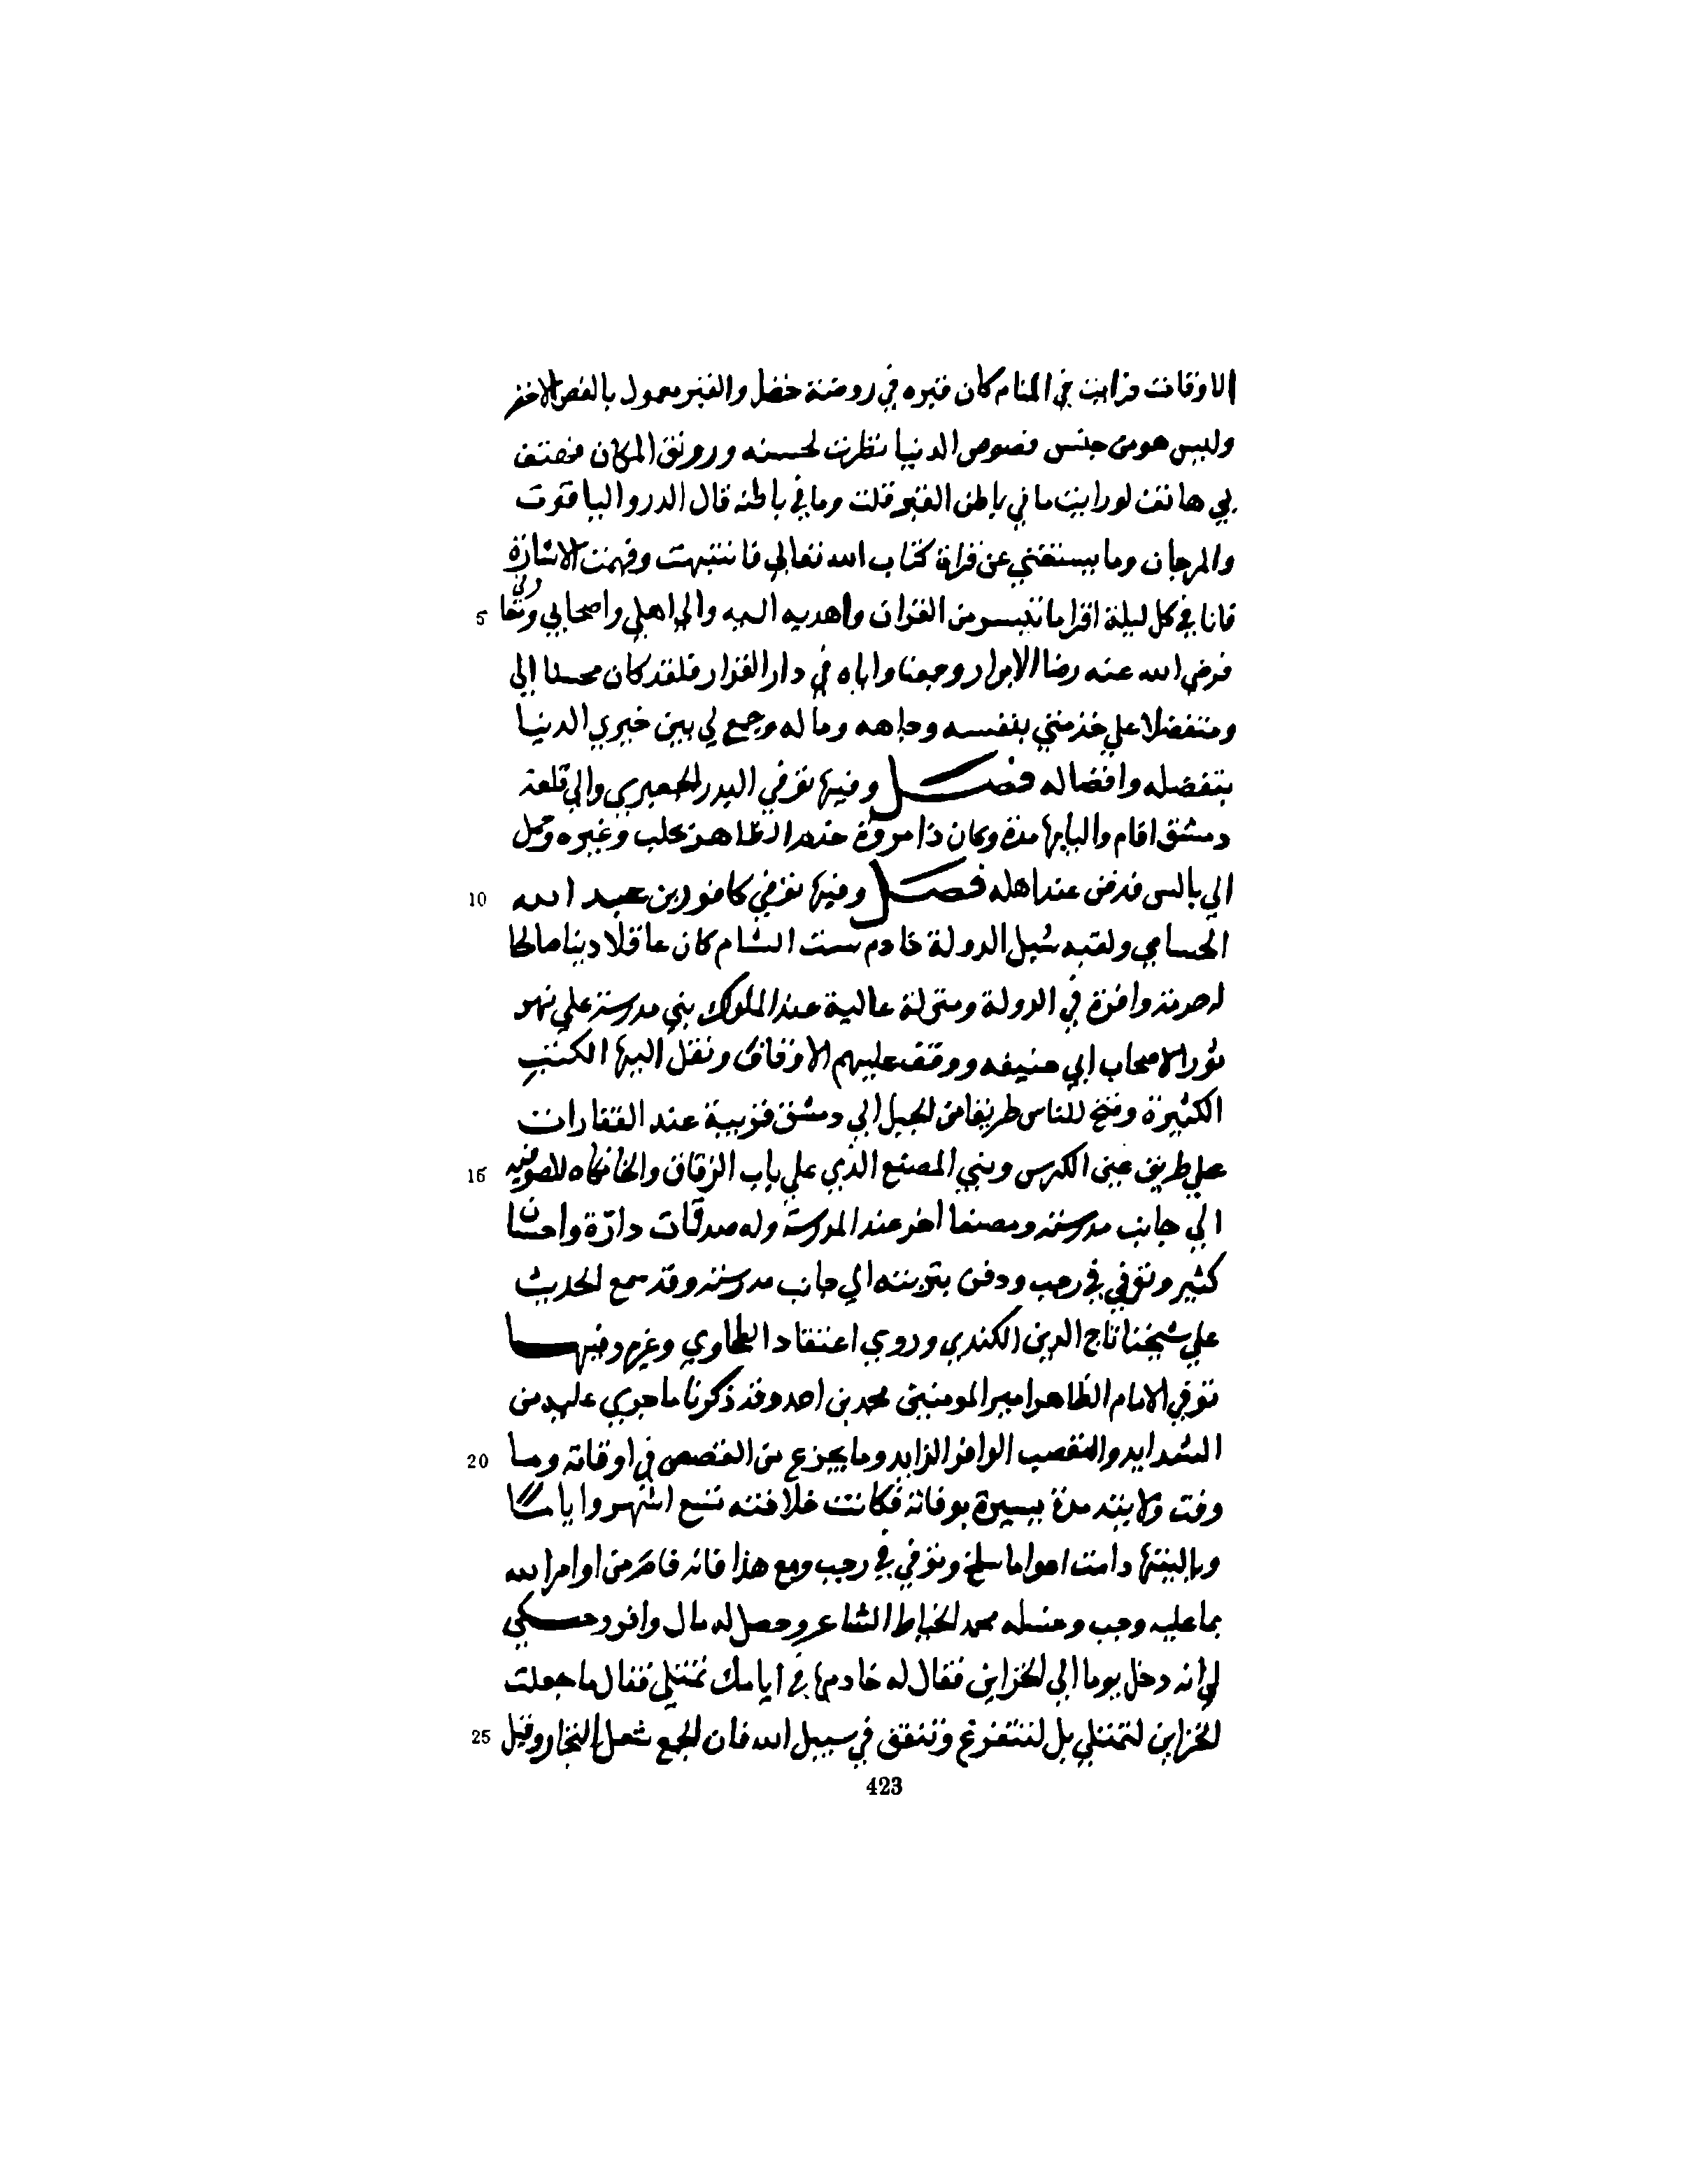 الاوقات فرايت في المنام كان قبره في روضة خضل والقبر معمول بالفص الاخضر
وليس هو من جنس فصوص الدنيا نظرت لحسنه ورونق المكان فهتف
بي هاتف لو رايت ما في باطن القبر قلت وما في باطنه قال الدر والياقوت
والمرجان وما يستغني عن قراة كتاب الله تعالي فانتبهت وفهمت الاشارة
5 فانا في كل ليلة اقرا ما تيسر من القران واهديه اليه والي اهلي واصحابي
فرضي الله عنه رضا الابرار وجمعنا واياه في دار القرار فلقد كان محسنا الي
ومتفضلا علي خدمتي بنفسه وجاهه وماله وجمع لي بين خيري الدنيا
بتفضله وافضاله فصل وفيها توفي البدر الجعبري والي قلعة
دمشق اقام واليا بها مدة وكان ذا مروة خدم الظاهر بحلب وغيره وحمل
10 الي بالس فدفن عند اهله فصل وفيها توفي كافور بن عبد الله
الحسامي ولقبه شبل الدولة خادم ست الشام كان عاقلا دينا صالحا
له حرمة وافرة في الدولة ومنزلة عالية عند الملوك بني مدرسة علي نهر
ثورا لاصحاب ابي حنيفه ووقف عليهم الاوقاف ونقل اليها الكتب
الكثيرة وفتح للناس طريقا من الجبل الي دمشق قريبة عند القفارات
15 علي طريق عين الكرس وبني المصنع الذي علي باب الزقاق والخانكاه للصوفيه
الي جانب مدرسته ومصنعا اخر عند المدرسة وله صدقات دارّة واحسان
كثير وتوفي في رجب ودفن بتربته الي جانب مدرسته وقد سمع الحديث
علي شيخنا تاج الدين الكندي وروي اعتقاد الطحاوي وغيره وفيها
توفي الامام الظاهر امير المومنين محمد بن احمد وقد ذكرنا ما جري عليه من
20 الشدايد والتعصب الوافر الزايد وما يجرع من الغصص في اوقاته وما
وفت ولايته مدة يسيرة بوفاته فكانت خلافته تسع اشهر واياما
وياليتها دامت اعواما سلخ وتوفي في رجب ومع هذا فانه قام من اوامر الله
بما عليه وجب وغسله محمد الخياط الشاعر وحصل له مال وافر وحكي
لي انه دخل يوما الي الخزاين فقال له خادمها في ايامك تمتلي فقال ما جعلت
25 الخزاين لتمتلي بل لتفرغ وتنفق في سبيل الله فان الجمع شغل التجار وقيل
423